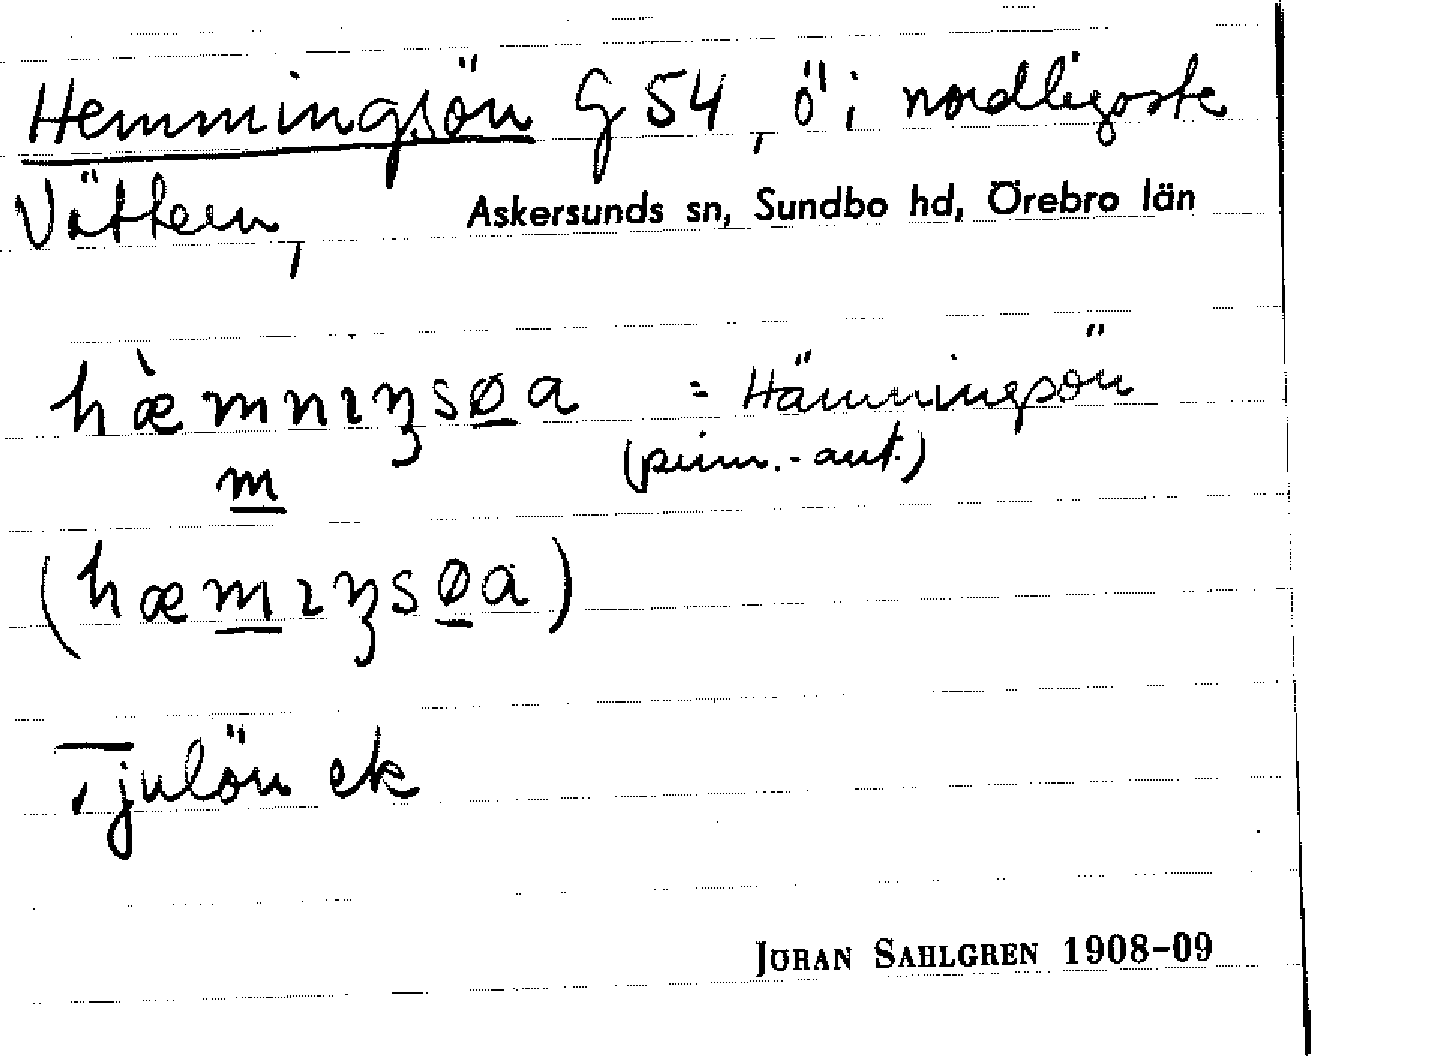 Hemmingsön G 54, ö i nordligaste
Vättern, Askersunds sn, Sundbo hd, Örebro län
hæ̀mnıŋsøa = Hämningsön
m (prim.-ant.)
(hæmıŋsøa)
Tjulön ek
JÖRAN SAHLGREN 1908-09